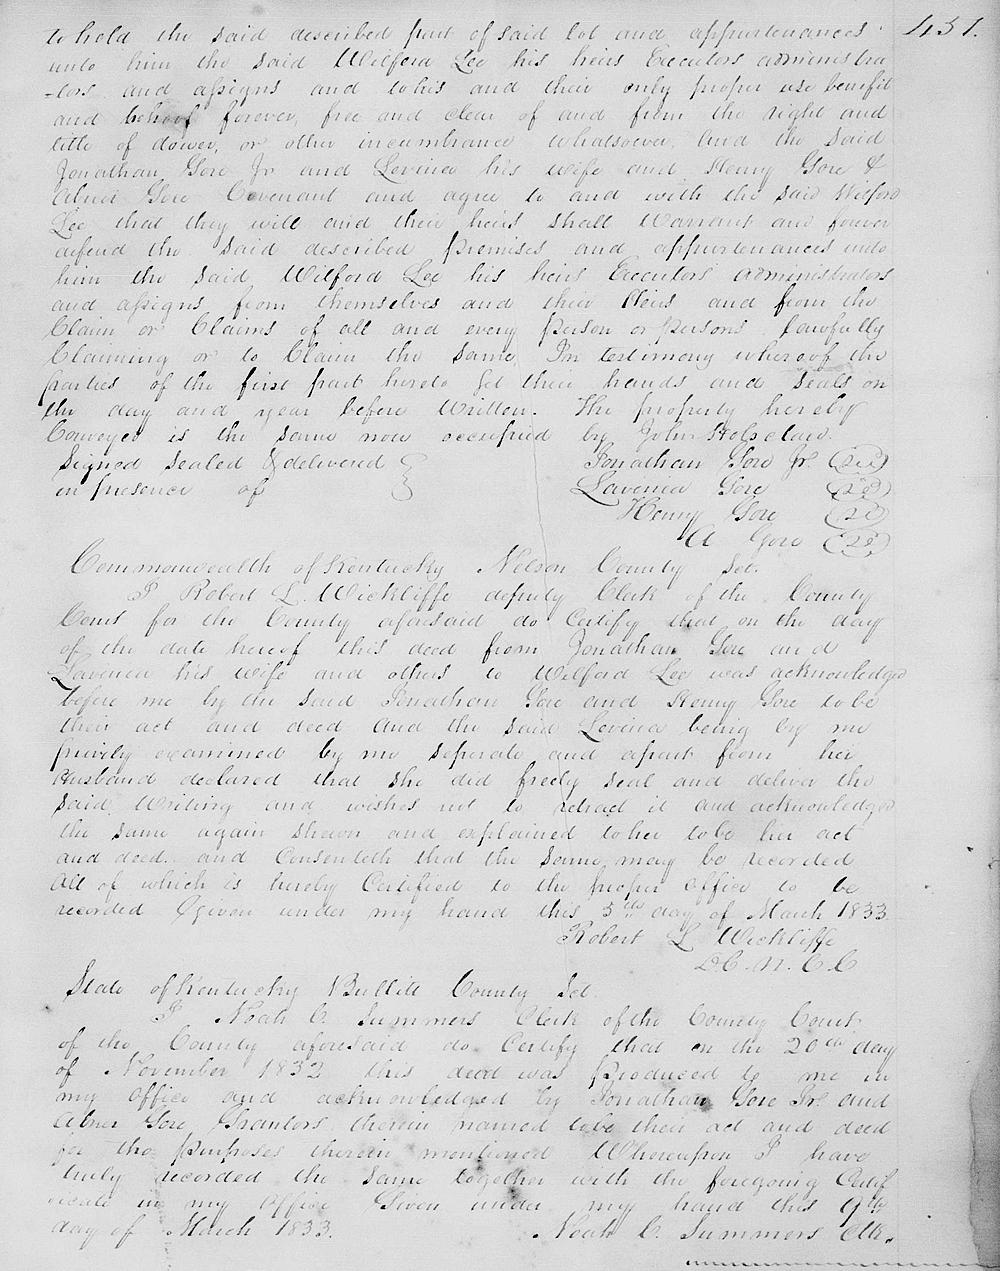 431.
to hold the said described part of said lot and appurtenances
unto him the said Wilford Lee his heirs Executors administra
-tors and assigns and to his and their only proper use benefit
and behoof forever, free and clear of and from the right and
title of dower, or other incumbrance whatsoever, And the said
Jonathan Gore Jr and Levinea his wife and Henry Gore &
Abner Gore Covenant and agree to and with the said Wilford
Lee that they will and their heirs shall Warrant and forever
defend the said described premises and appurtenances unto
him the said Wilford Lee his heirs Executors administrators
and assigns from themselves and their Heirs and from the
Claim or Claims of all and every person or persons lawfully
Claiming or to Claim the same In testimony whereof the
parties of the first part hereto Set their hands and seals on
the day and year before Written. The property hereby
Conveyed is the same now occupied by John
Signed Sealed & delivered
in presence of
Jonathan Gore Jr. (seal)
Lavenea Gore (seal)
Henry Gore (seal)
A Gore (seal)
Commonwealth of Kentucky Nelson County Sct.
I Robert L. Wickliffe deputy Clerk of the County
Court for the County aforesaid do Certify that on the day
of the date hereof this deed from Jonathan Gore and
Lavenea his wife and others to Wilford Lee was acknowledged
before me by the said Jonathan Gore and Henry Gore to be
their act and deed And the said Levinea being by me
privily examined by me seperate and apart from her
Husband declared that she did freely seal and deliver the
said Writing and wishes not to retract it and acknowledged
the same again shewn and explained to her to be her act
and deed. and Consenteth that the same may be recorded
All of which is hereby Certified to the proper office to be
recorded Given under my hand this 5th day of March 1833
Robert L Wickliffe
D.C.N.C.C
State of Kentucky Bullitt County Sct.
I Noah C. Summers Clerk of the County Court
of the County aforesaid do Certify that on the 20th day
of November 1832 this deed was produced to me in
my office and acknowledged by Jonathan Gore Jr. and
Abner Gore Grantors therein named to be their act and deed
for the purposes therein mentioned Whereupon I have
truly recorded the same together with the foregoing Certif
icate in my Office Given under my hand this 9th
day of March 1833. Noah C. Summers Clk.